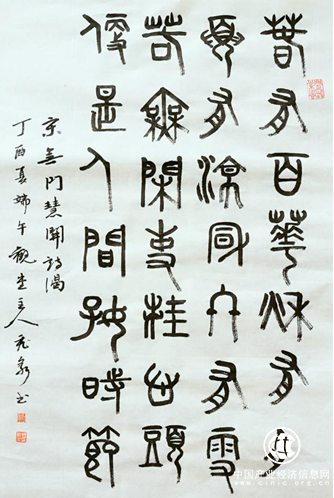 春有百華秋有月
夏有涼風冬有雪
若無閑事挂心頭
便是人間好時節
宋無門慧開詩偈
丁酉夏端午觀堂主人
中国产业经济信息网
www.cinic.org.cn